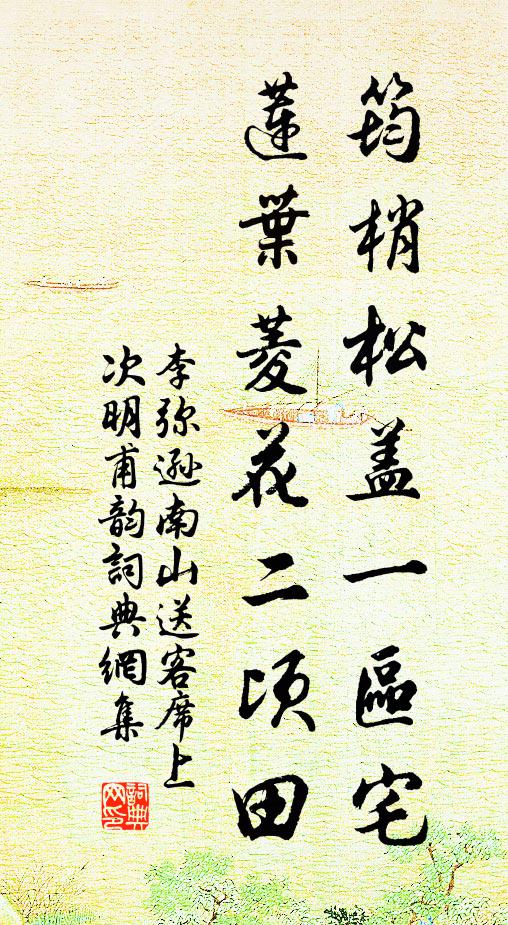 筠梢松盖一區宅
蓮葉菱花二頃田
李弥遜南山送客席上
次明甫韵詞典網集
詞典
网印